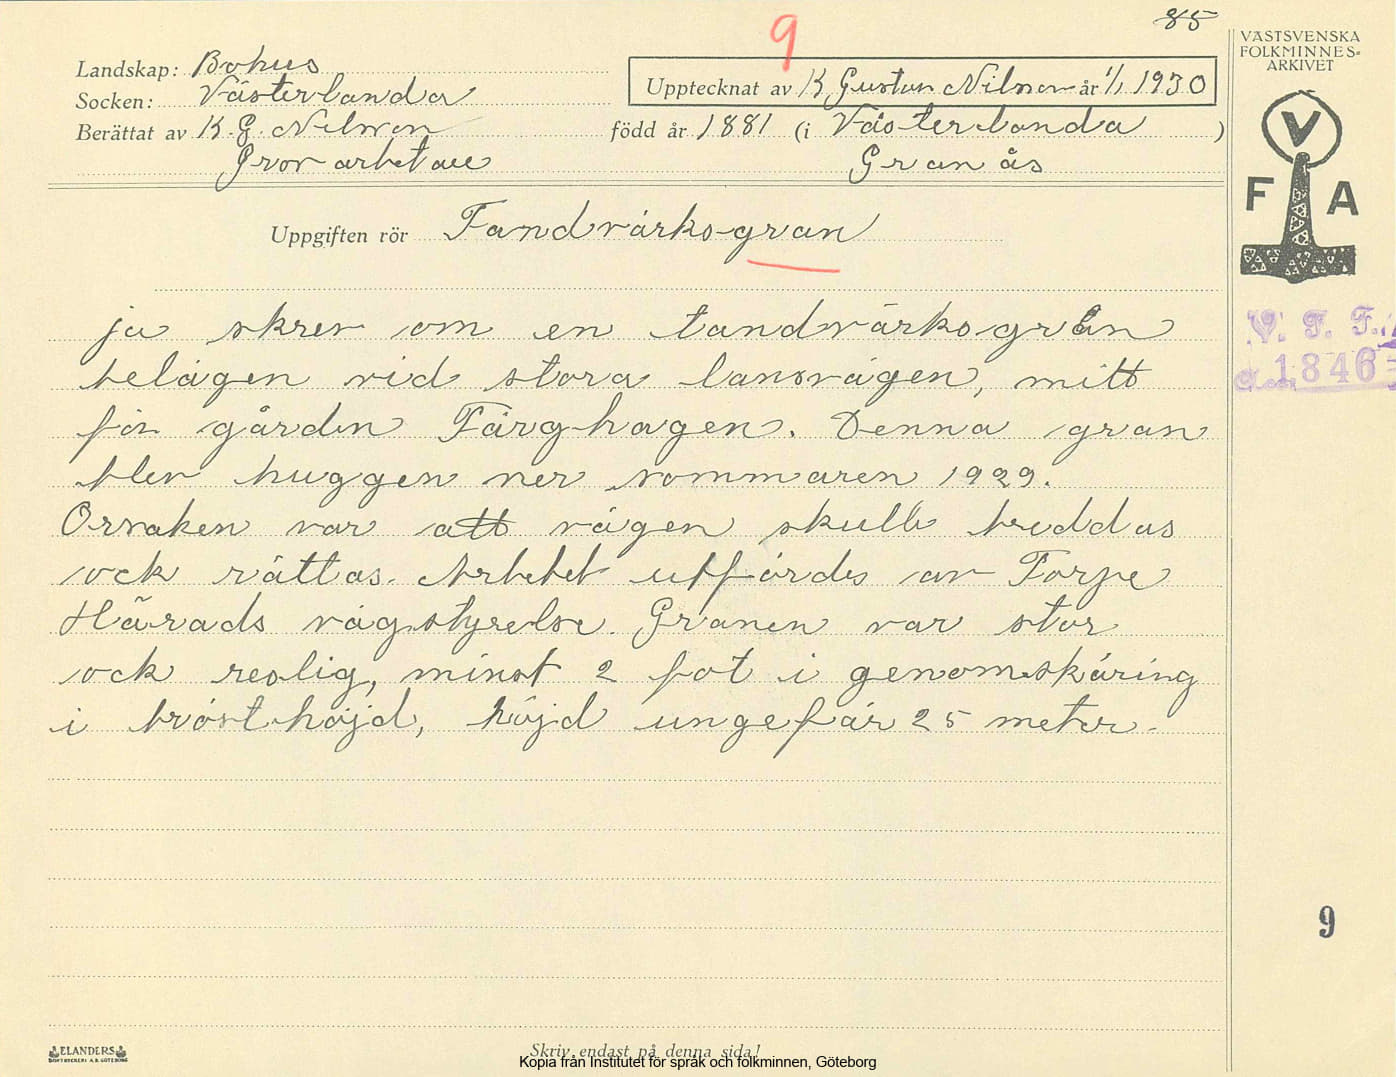 85
9
VÄSTSVENSKA
FOLKMINNES=
ARKIVET
Landskap: Bohus
Socken: Västerlanda
Upptecknat av K Gustav Nilsson år 1/1 1930
Berättat av K. G. Nilsson född år 1881 (i Västerlanda)
Grovarbetare Granås
V
F A
Uppgiften rör Tandvärks-gran
ja skrev om en tandvärksgran
belägen vid stora lansvägen, mitt
för gården Färghagen. Denna gran
blev huggen ner sommaren 1929.
Orsaken var att vägen skulle breddas
ock rättas. Arbetet utfördes av Torpe
Härads vägstyrelse. Granen var stor
ock reslig, minst 2 fot i genomskäring
i brösthöjd, höjd ungefär 25 meter.
V. F. F.
1846
9
ELANDERS
BOKTRYCKERI A.B. GÖTEBORG
Skriv endast på denna sida!
Kopia från Institutet för språk och folkminnen, Göteborg